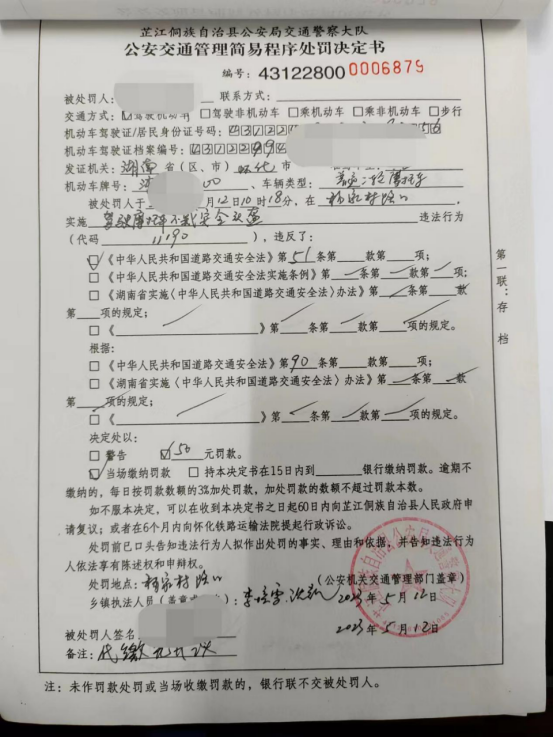 芷江侗族自治县公安局交通警察大队
公安交通管理简易程序处罚决定书
编号：431228000006879
被处罚人： 联系方式：
交通方式：☑驾驶机动车 □驾驶非机动车 □乘机动车 □乘非机动车 □步行
机动车驾驶证/居民身份证号码：431222
机动车驾驶证档案编号：4312
发证机关：湖南省（区、市）怀化市
机动车牌号： 00、车辆类型：普通二轮摩托车
被处罚人于 月12日10时18分，在杨家村路口
实施驾驶摩托车不戴安全头盔违法行为
（代码 11190 ），违反了：
☑《中华人民共和国道路交通安全法》第51条第 款第 项；
□《中华人民共和国道路交通安全法实施条例》第 条第 款第 项；
□《湖南省实施〈中华人民共和国道路交通安全法〉办法》第 条第 款
第 项的规定；
□《 》第 条第 款第 项的规定。
根据：
□《中华人民共和国道路交通安全法》第90条第 款第 项；
□《湖南省实施〈中华人民共和国道路交通安全法〉办法》第 条第 款
第 项的规定；
□《 》第 条第 款第 项的规定。
决定处以：
□ 警告 ☑50元罚款。
☑当场缴纳罚款 □ 持本决定书在15日内到 银行缴纳罚款。逾期不
缴纳的，每日按罚款数额的3%加处罚款，加处罚款的数额不超过罚款本数。
如不服本决定，可以在收到本决定书之日起60日内向芷江侗族自治县人民政府申
请复议；或者在6个月内向怀化铁路运输法院提起行政诉讼。
处罚前已口头告知违法行为人拟作出处罚的事实、理由和依据，并告知违法行为
人依法享有陈述权和申辩权。
处罚地点：杨家村路口 （公安机关交通管理部门盖章）
乡镇执法人员（盖章 ）： 2023年5月12日
被处罚人签名 2023年5月12日
备注：代缴
注：未作罚款处罚或当场收缴罚款的，银行联不交被处罚人。
第一联：存档